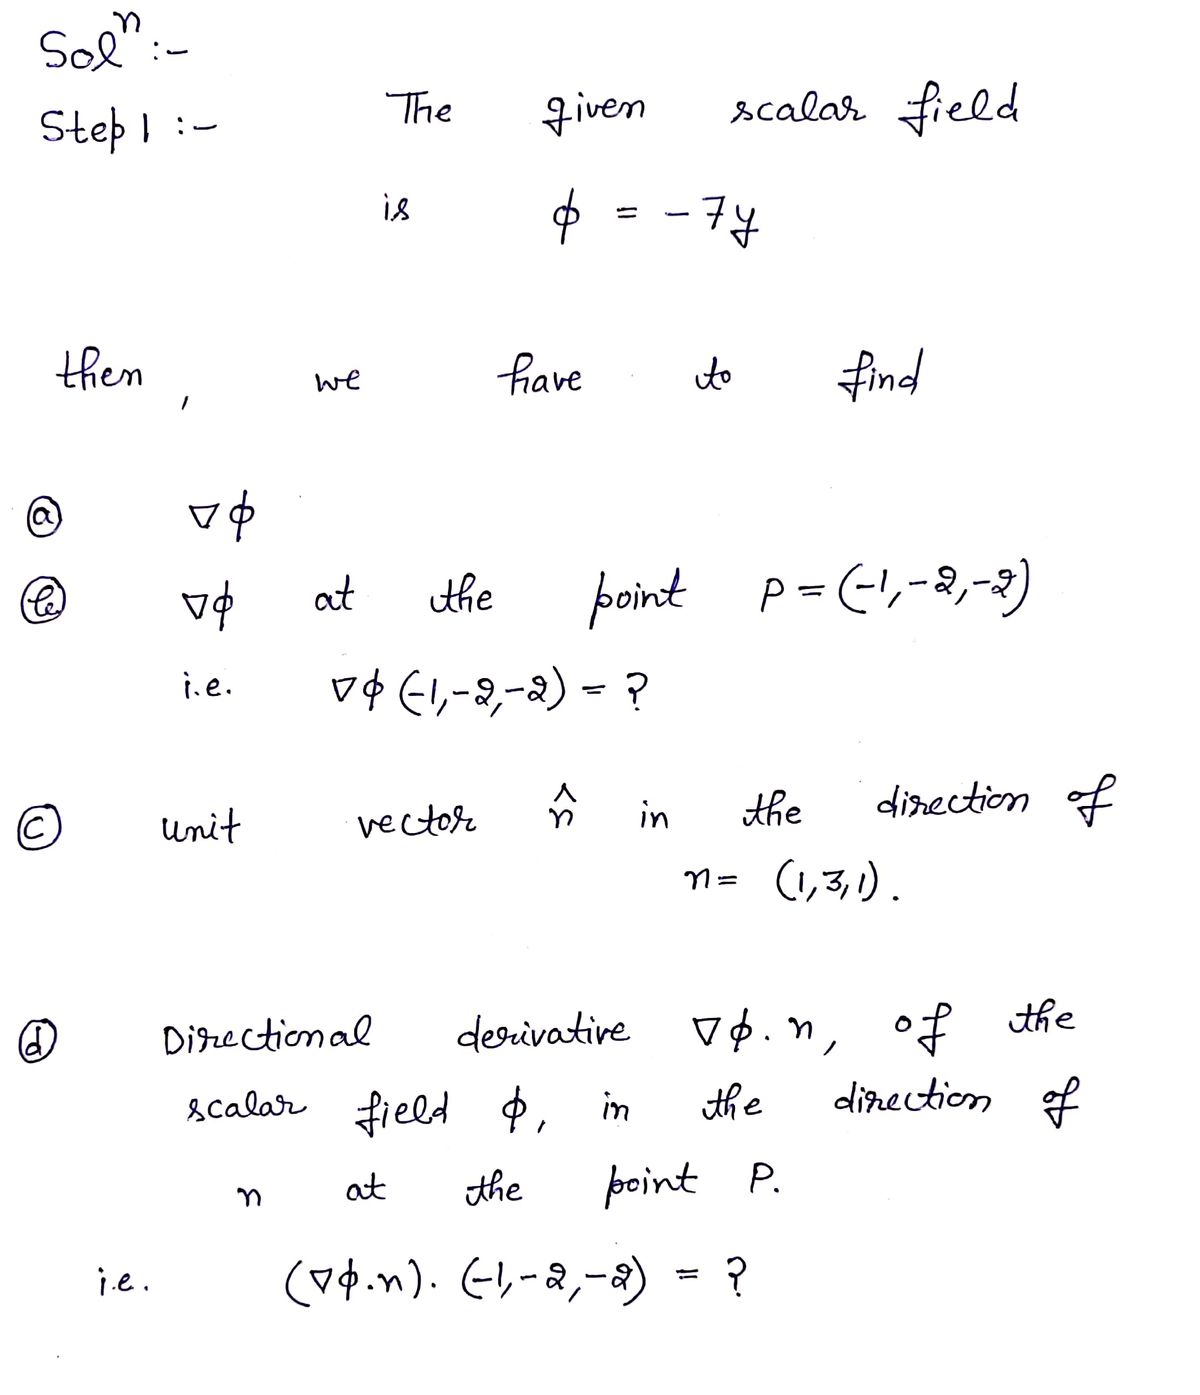 Solⁿ :-
Step 1 :- The given scalar field
is ϕ = -7y
then , we have to find
ⓐ ∇ϕ
ⓑ ∇ϕ at the point P = (-1,-2,-2)
i.e. ∇ϕ (-1,-2,-2) = ?
ⓒ unit vector n̂ in the direction of
n = (1,3,1).
ⓓ Directional derivative ∇ϕ.n, of the
scalar field ϕ, in the direction of
n at the point P.
i.e. (∇ϕ.n). (-1,-2,-2) = ?